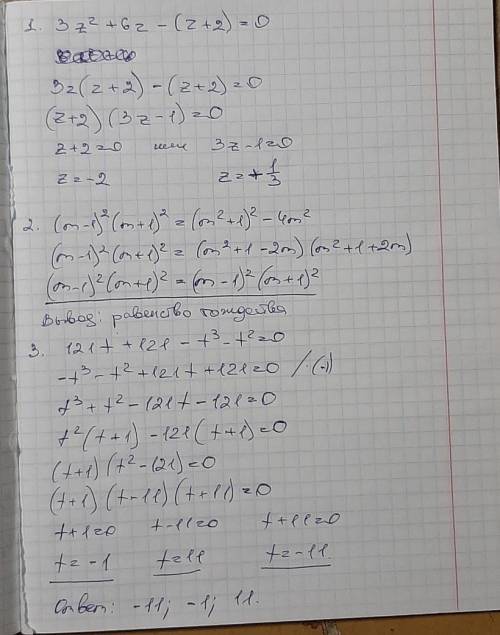 1. 3z² + 6z - (z+2) = 0
3z(z+2) - (z+2) = 0
(z+2)(3z-1) = 0
z+2=0 или 3z-1=0
z=-2 z=+1/3
2. (m-1)²(m+1)² = (m²+1)² - 4m²
(m-1)²(m+1)² = (m²+1-2m)(m²+1+2m)
(m-1)²(m+1)² = (m-1)²(m+1)²
Вывод: равенство тождества
3. 121t + 121 - t³ - t² = 0
-t³ - t² + 121t + 121 = 0 /·(-1)
t³ + t² - 121t - 121 = 0
t²(t+1) - 121(t+1) = 0
(t+1)(t²-121) = 0
(t+1)(t-11)(t+11) = 0
t+1=0 t-11=0 t+11=0
t=-1 t=11 t=-11
Ответ: -11; -1; 11.